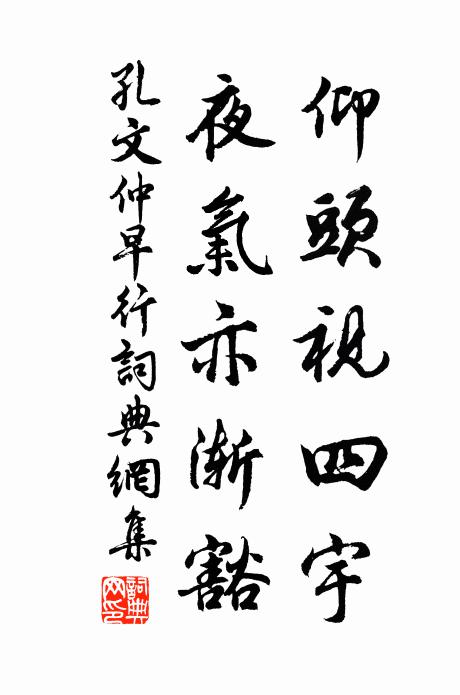 仰頭視四宇
夜氣亦漸豁
孔文仲早行詞典網集
詞典網印